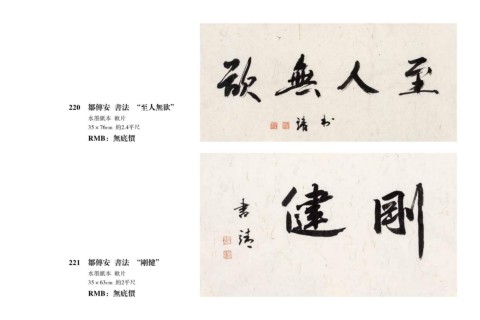 220 鄒傳安 書法 “至人無欲”
水墨紙本 鏡片
35×76cm 約2.4平尺
RMB：無底價
至人無欲
221 鄒傳安 書法 “剛健”
水墨紙本 鏡片
35×63cm 約2平尺
RMB：無底價
剛健